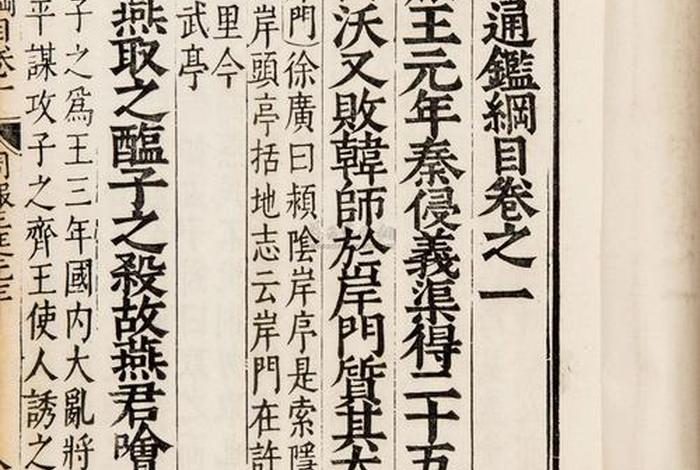 通鑑綱目卷之一
王元年秦侵義渠得二十五
沃又敗韓師於岸門質其太
門徐廣曰頴陰岸亭是索隱
岸頭亭括地志云岸門在許
里今
武亭
燕取之醢子之殺故燕君噲
子之爲王三年國內大亂將
平謀攻子之齊王使人誘之